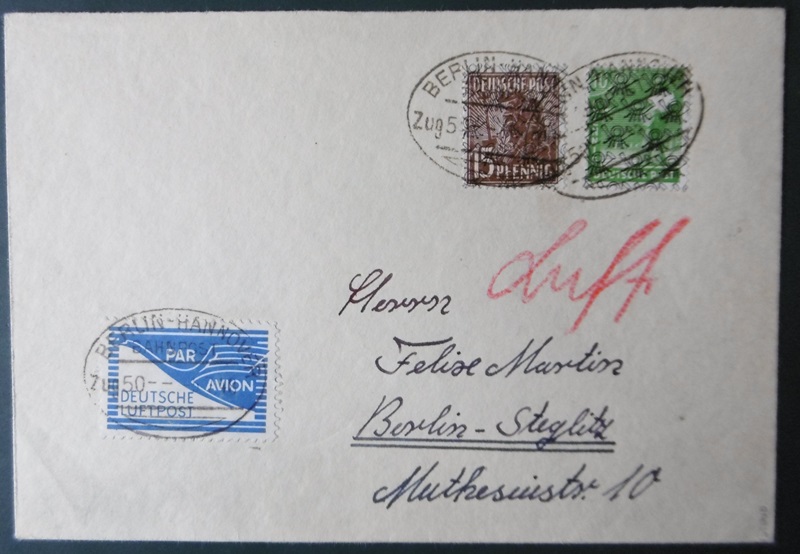 BERLIN-HANNOVER
Zug 5
DEUTSCHE POST
15 PFENNIG
HANNOVER
DEUTSCHE POST
Luft
Herrn
Felix Martin
Berlin-Steglitz
Muthesiusstr. 10
BERLIN-HANNOVER
BAHNPOST
Zug 50
PAR
AVION
DEUTSCHE
LUFTPOST